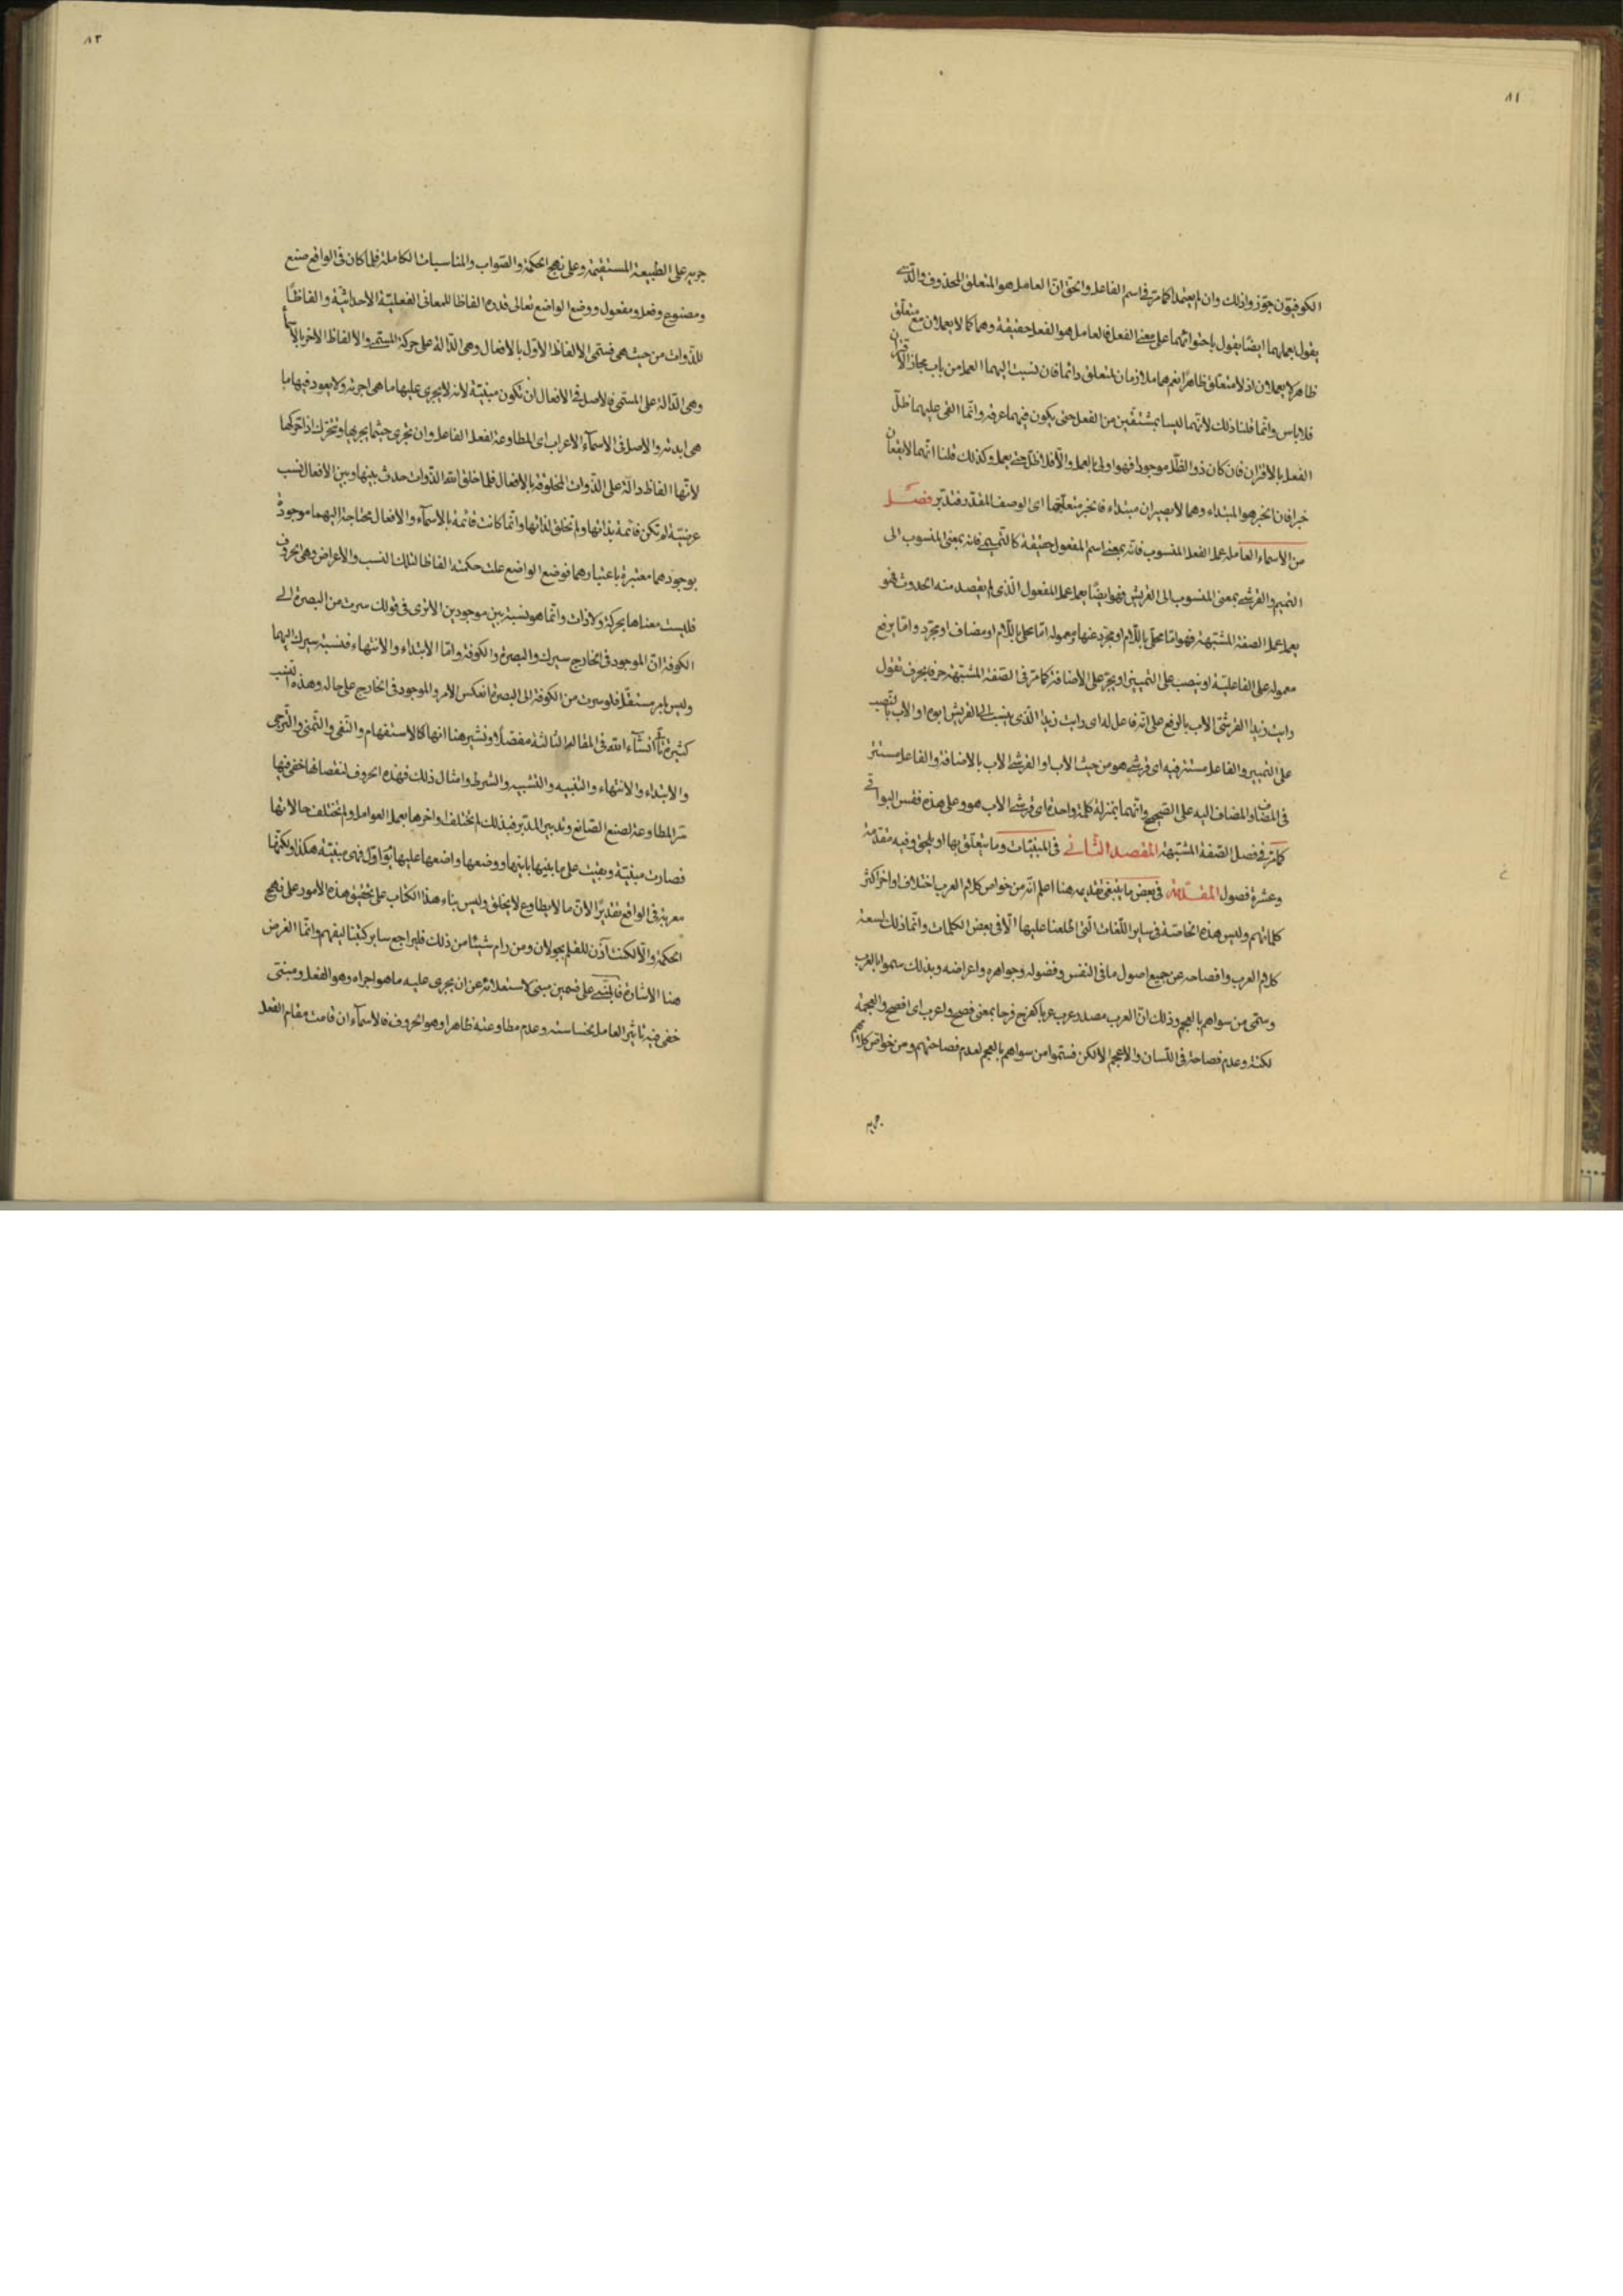 ٨١
الكوفيون جوزوا ذلك وان لم يعتمدا كما مر في اسم الفاعل والحق ان العامل هو المتعلق المحذوف والذي
يقول بعملهما ايضا يقول باحتوائهما على معنى الفعل فالعامل هو الفعل حقيقة وهما كما لا يعملان مع متعلق
ظاهر لا يعملان اذ لا متعلق ظاهرا نعم هما ملازمان لمتعلق دائما فان نسبت اليهما العمل من باب مجاز الاقتران
فلا باس وانما قلنا ذلك لانهما ليسا بمشتقين من الفعل حتى يكون فيهما عرفه وانما القى عليهما ظل
الفعل بالاقتران فان كان ذو الظل موجودا فهو اولى بالعمل والا فلا ظل حتى يعمل وكذلك قلنا انهما لا يقعان
خبرا فان الخبر هو المبتداء وهما لا يصيران مبتداء فالخبر متعلقهما اى الوصف المقدر فتدبر فصل
من الاسماء العاملة عمل الفعل المنسوب فانه بمعنى اسم المفعول حقيقة كالتميمي فانه بمعنى المنسوب الى
التميم والقرشي بمعنى المنسوب الى القريش فهو ايضا يعمل عمل المفعول الذي لم يقصد منه الحدوث فهو
يعمل عمل الصفة المشتبهة فهو اما محلى باللام او مجرد عنها ومعموله اما محلى باللام او مضاف او مجرد واما يرفع
معموله على الفاعلية او ينصب على التمييز او يجر على الاضافة كما مر في الصفة المشتبهة حرفا بحرف تقول
رايت زيدا القرشي الاب بالرفع على انه فاعل له اى رايت زيدا الذي ينسب الى القريش ابوه او الاب بالنصب
على التمييز والفاعل مستتر فيه اى قرشي هو من حيث الاب او القرشي الاب بالاضافة والفاعل مستتر
في المضاف والمضاف اليه على الصحيح وانهما بمنزلة كلمة واحدة اى قرشي الاب هو وعلى هذه فقس البواقي
كما مر في فصل الصفة المشتبهة المقصد الثاني في المبنيات وما يتعلق بها او يلحق وفيه مقدمة
وعشرة فصول المقدمة في بعض ما ينبغي تقديمه هنا اعلم انه من خواص كلام العرب اختلاف اواخر اكثر
كلماتهم وليس هذه الخاصة في ساير اللغات التي اطلعنا عليها الا في بعض الكلمات وانما ذلك لسعة
كلام العرب وافصاحه عن جميع اصول ما في النفس وفضوله وجواهره واعراضه وبذلك سموا بالعرب
وسمي من سواهم بالعجم وذلك ان العرب مصدر عرب عربا كفرح فرحا بمعنى فصح واعرب اى افصح والعجمة
لكنة وعدم فصاحة في اللسان والاعجم الالكن فسموا من سواهم بالعجم لعدم فصاحتهم ومن خواص كلامهم
جريه
٨٢
جريه على الطبيعة المستقيمة وعلى نهج الحكمة والصواب والمناسبات الكاملة فلما كان في الواقع صنع
ومصنوع وفعل ومفعول ووضع الواضع تعالى قدره الفاظا للمعاني الفعلية الاحداثية والفاظا
للذوات من حيث هي فسمى الالفاظ الاول بالافعال وهي الدالة على حركة المسمى والالفاظ الاخر بالاسماء
وهي الدالة على المسمى فالاصل في الافعال ان تكون مبنية لانه لا يجرى عليها ما هى اجرته ولا يعود فيها ما
هى ابدئته والاصل في الاسماء الاعراب اى المطاوعة لفعل الفاعل وان يجرى حيثما يجريها وتتحرك اذا حركها
لانها الفاظ دالة على الذوات المخلوقة بالافعال فلما خلق الله الذوات حدث بينها وبين الافعال نسب
عرضية لم تكن قائمة بذاتها ولم تخلق لذاتها وانما كانت قائمة بالاسماء والافعال محتاجة اليهما موجودة
بوجودهما معتبرة باعتبارهما فوضع الواضع علت حكمته الفاظا لتلك النسب والاعراض وهي الحروف
فليست معناها بحركة ولا ذات وانما هو نسبة بين موجودين الا ترى في قولك سرت من البصرة الى
الكوفة ان الموجود في الخارج سيرك والبصرة والكوفة واما الابتداء والانتهاء فنسبة سيرك اليهما
وليس بامر مستقل فلو سرت من الكوفة الى البصرة انعكس الامر والموجود في الخارج على حاله وهذه النسب
كثيرة تاتي انشاء الله في المقالة الثالثة مفصلا ونشير هنا انها كالاستفهام والنفي والتمني والترجي
والابتداء والانتهاء والتنبيه والتشبيه والشرط وامثال ذلك فهذه الحروف لنقصانها خفي فيها
سر المطاوعة لصنع الصانع وتدبير المدبر فبذلك لم يختلف اواخرها بعمل العوامل ولم تختلف حالاتها
فصارت مبنية وبقيت على ما بنيها بانيها ووضعها واضعها عليها يوم اول فهي مبنية هكذا ولكنها
معربة في الواقع تقديرا لان ما لا يطاوع لا يخلق وليس بناء هذا الكتاب على تحقيق هذه الامور على نهج
الحكمة والا لكنت آذن للقلم بجولان ومن رام شيئا من ذلك فليراجع ساير كتبنا ليفهم وانما الغرض
هنا الاشارة فالمبني على قسمين مبني لاستعلائه عن ان يجرى عليه ما هو اجراه وهو الفعل ومبني
خفي فيه تاثير العامل لخساسته وعدم مطاوعته ظاهرا وهو الحروف فالاسماء ان قامت مقام الفعل